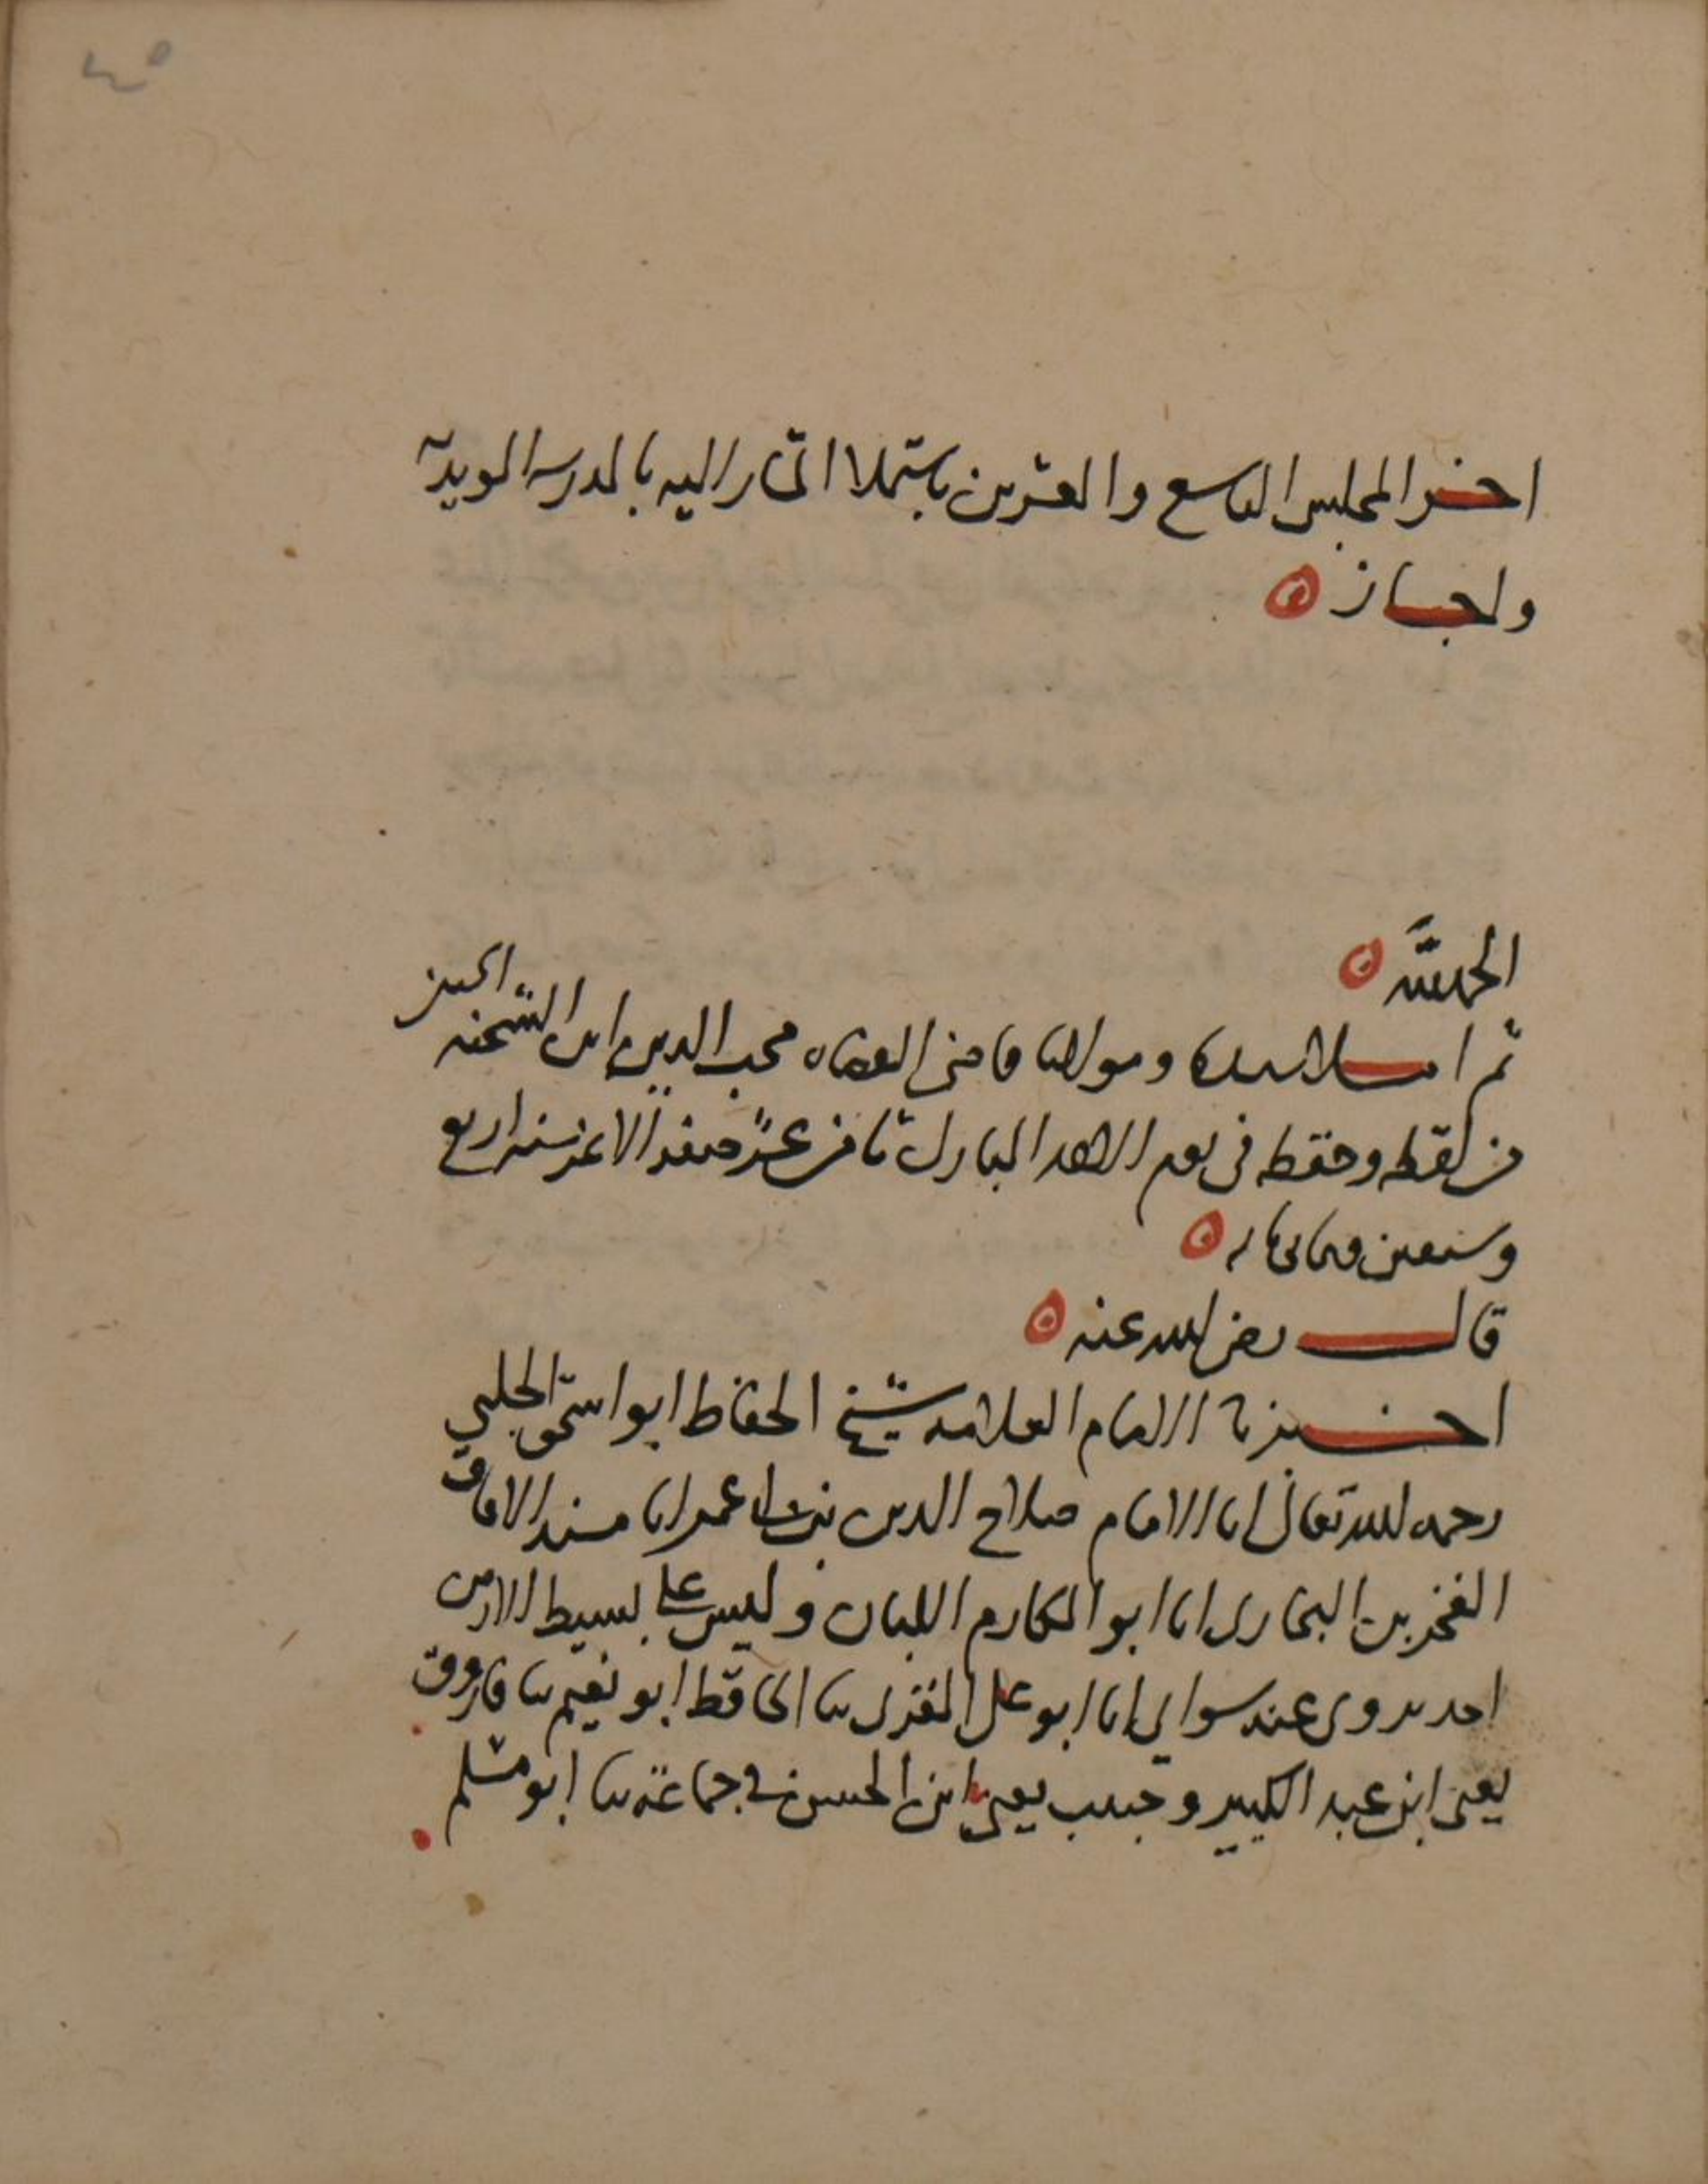 ٤٥
اخر المجلس التاسع والعشرين باستملا المشار اليه بالمدرسه المويدية
واجاز
الحمد لله
ثم املا سيدنا ومولانا قاضى القضاه محب الدين ابن الشحنه
من لفظه وحفظه فى يوم الاحد المبارك ثامن عشر صفر الاغر سنه اربع
وسبعين وثمانمايه
قال رضى الله عنه
اخبرنا الامام العلامه شيخ الحفاظ ابو اسحق الحلبي
رحمه الله تعالى انا الامام صلاح الدين بن ابى عمر انا مسند الافاق
الفخر بن البخارى انا ابو المكارم اللبان وليس على بسيط الارض
احد يروى عنه سواي انا ابو على المقرى ثنا الحافظ ابو نعيم ثنا فاروق
يعنى ابن عبد الكبير وحبيب يعنى ابن الحسن فى جماعة ثنا ابو مسلم